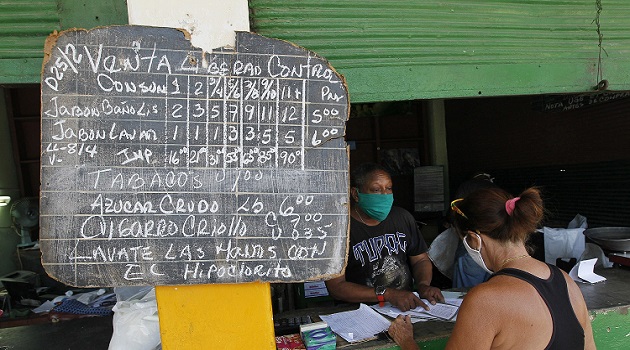 D25/2 VENTA LIBERAD CONTROL
CONSUM 1 2 3/4 5/6 7/8 9/10 11+ PRE
JABON BAÑO LIS 2 3 5 7 9 11 12 5.00
JABON LAVAR 1 1 1 3 3 5 5 6.00
IMP. 16 21 31 55 65 85 90
TABACOS 1.00
AZUCAR CRUDO Lb 6.00
CIGARRO CRIOLLO C 7.00
LAVATE LAS MANOS CON
EL HIPOCLORITO